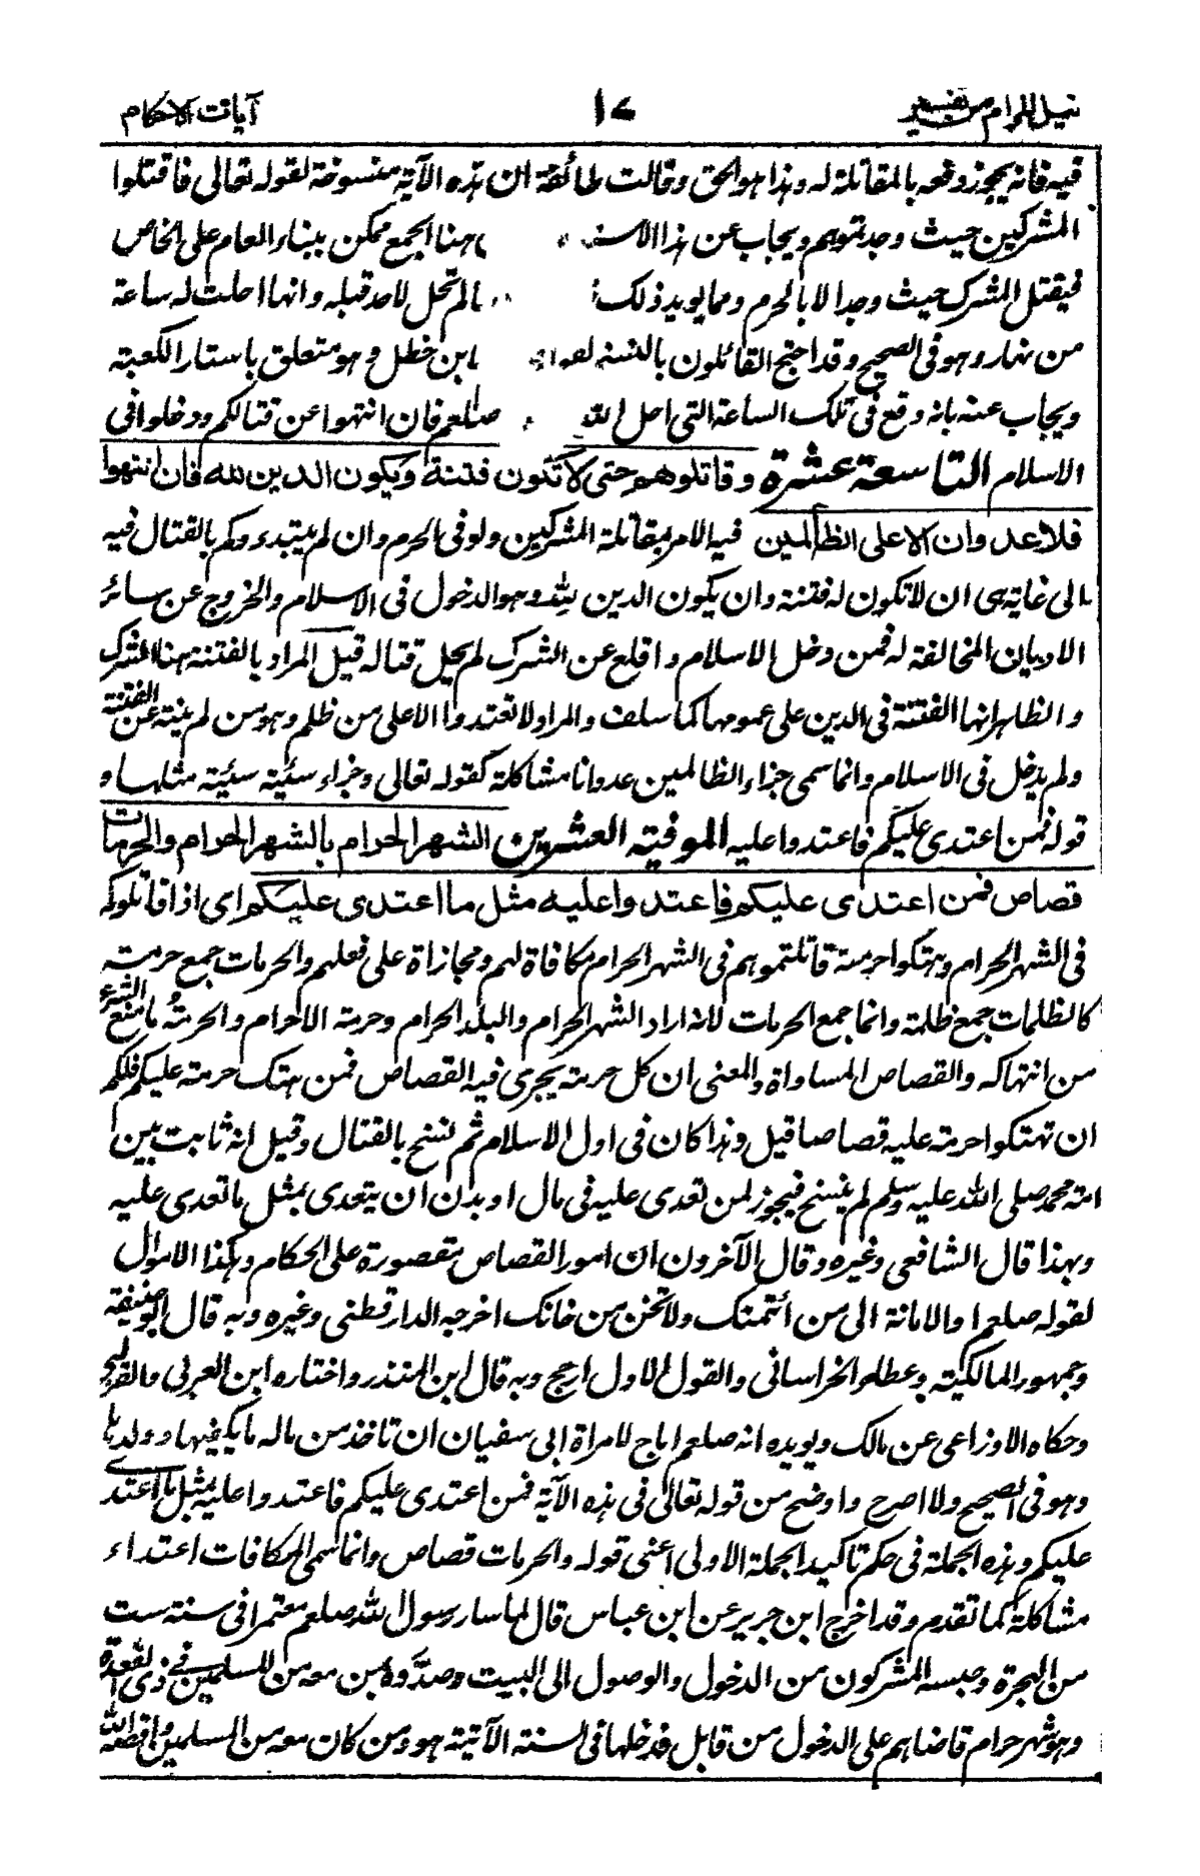 نيل المرام من تفسير ١٧ آيات الاحكام
فيه فانه يجوز دفعه بالمقاتلة له وهذا هو الحق وقالت طائفة ان هذه الآية منسوخة لقوله تعالى فاقتلوا
المشركين حيث وجدتموهم ويجاب عن هذا الاست هنا الجمع ممكن ببناء العام على الخاص
فيقتل المشرك حيث وجد الا بالحرم ومما يويد ذلك لم تحل لاحد قبله وانها احلت له ساعة
من نهار وهو فى الصحيح وقد احتج القائلون بالنسخ ابن خطل وهو متعلق باستار الكعبة
ويجاب عنه بانه وقع فى تلك الساعة التى احل الله صلعم فان انتهوا عن قتالكم ودخلوا فى
الاسلام التاسعة عشرة وقاتلوهم حتى لا تكون فتنة ويكون الدين لله فان انتهوا
فلا عدوان الا على الظالمين فيه الامر بمقاتلة المشركين ولو فى الحرم وان لم يبتدءوكم بالقتال فيه
الى غاية هى ان لا تكون له فتنة وان يكون الدين لله وهو الدخول فى الاسلام والخروج عن سائر
الاديان المخالفة له فمن دخل الاسلام واقلع عن الشرك لم يحل قتاله قيل المراد بالفتنة هنا الشرك
والظاهر انها الفتنة فى الدين على عمومها كما سلف والمراد لا تعتدوا الا على من ظلم وهو من لم ينته عن الفتنة
ولم يدخل فى الاسلام وانما سمى جزاء الظالمين عدوانا مشاكلة كقوله تعالى وجزاء سئية سئية مثلها و
قوله فمن اعتدى عليكم فاعتدوا عليه الموفية العشرين الشهر الحرام بالشهر الحرام والحرمات
قصاص فمن اعتدى عليكم فاعتدوا عليه مثل ما اعتدى عليكم اى اذا قاتلوكم
فى الشهر الحرام وهتكوا حرمته قاتلتموهم فى الشهر الحرام مكافاة لهم ومجازاة على فعلهم والحرمات جمع حرمة
كالظلمات جمع ظلمة وانما جمع الحرمات لانه اراد الشهر الحرام والبلد الحرام وحرمة الاحرام والحرمة ما منع الشرع
من انتهاكه والقصاص المساواة والمعنى ان كل حرمة يجرى فيه القصاص فمن هتك حرمة عليكم فلكم
ان تهتكوا حرمة عليه قصاصا قيل وهذا كان فى اول الاسلام ثم نسخ بالقتال وقيل انه ثابت بين
امة محمد صلى الله عليه وسلم لم ينسخ فيجوز لمن تعدى عليه فى مال او بدن ان يتعدى بمثل ما تعدى عليه
وبهذا قال الشافعى وغيره وقال الآخرون ان امور القصاص مقصورة على الحكام وهكذا الاموال
لقوله صلعم اد الامانة الى من ائتمنك ولا تخن من خانك اخرجه الدارقطنى وغيره وبه قال ابو حنيفة
وجمهور المالكية وعطاء الخراسانى والقول الاول ارجح وبه قال ابن المنذر واختاره ابن العربى والقرطبى
وحكاه الاوزاعى عن مالك ويويده انه صلعم اباح لامراة ابى سفيان ان تاخذ من ماله ما يكفيها وولدها
وهو فى الصحيح ولا اصرح واوضح من قوله تعالى فى هذه الآية فمن اعتدى عليكم فاعتدوا عليه بمثل ما اعتدى
عليكم وهذه الجملة فى حكم تاكيد الجملة الاولى اعنى قوله والحرمات قصاص وانما سمى المكافات اعتداء
مشاكلة كما تقدم وقد اخرج ابن جرير عن ابن عباس قال لما سار رسول الله صلعم معتمرا فى سنة ست
من الهجرة وحبسه المشركون من الدخول والوصول الى البيت وصدّوه بمن معه من المسلمين فى ذى القعدة
وهو شهر حرام قاضاهم على الدخول من قابل فدخلها فى السنة الآتية هو ومن كان معه من المسلمين واقصه الله